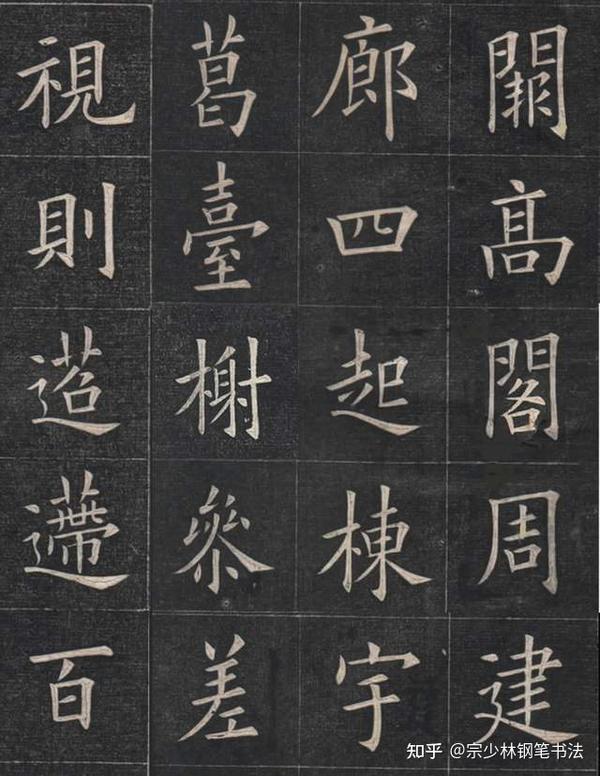 闕髙閣周建
廊四起棟宇
葛臺榭參差
視則迢遰百
知乎 @宗少林钢笔书法